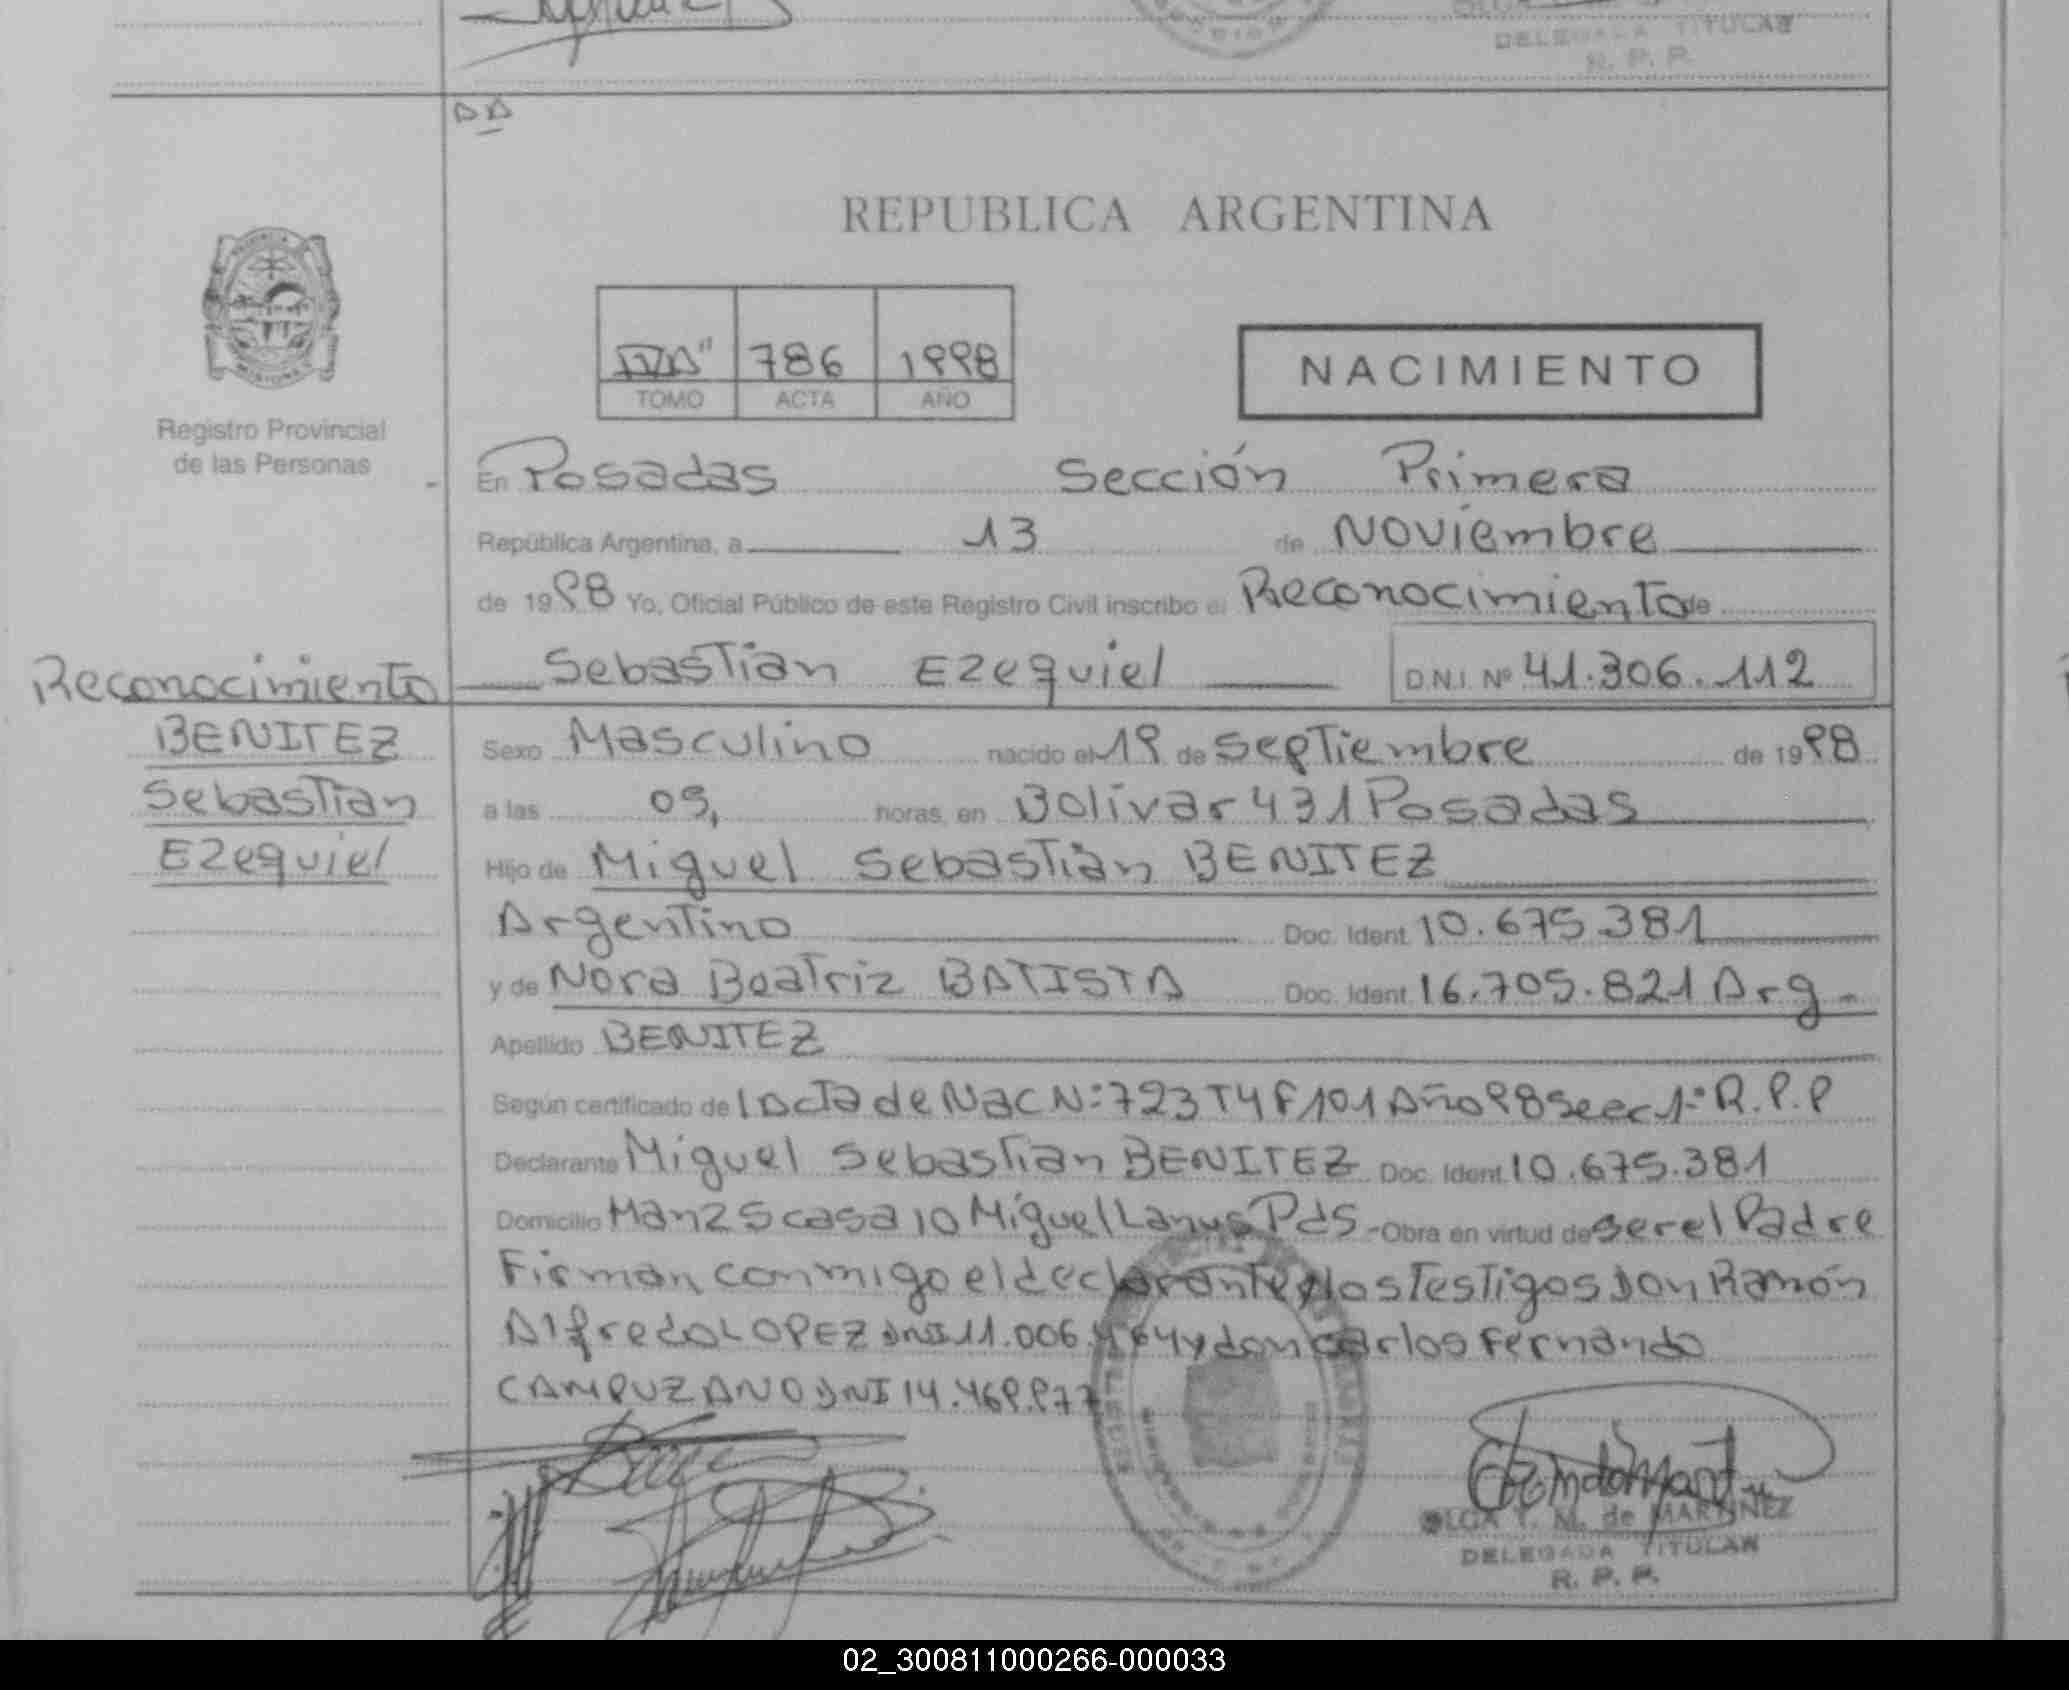 DELEGADA TITULAR
R. P. P.
REPUBLICA ARGENTINA
786 1998
TOMO ACTA AÑO
NACIMIENTO
Registro Provincial
de las Personas
En Posadas Sección Primera
República Argentina, a 13 de Noviembre
de 1998 Yo, Oficial Público de este Registro Civil inscribo el Reconocimiento de
Sebastian Ezequiel D.N.I. Nº 41.306.112
Reconocimiento
BENITEZ
Sebastian
Ezequiel
Sexo Masculino nacido el 19 de Septiembre de 1998
a las 09, horas, en Bolivar 431 Posadas
Hijo de Miguel Sebastián BENITEZ
Argentino Doc. Ident. 10.675.381
y de Nora Beatriz BATISTA Doc. Ident. 16.705.821 Arg.
Apellido BENITEZ
Según certificado de l Acta de Nac N: 723 T4 F101 Año 98 Secc 1º R.P.P
Declarante Miguel Sebastian BENITEZ Doc. Ident. 10.675.381
Domicilio Manz S casa 10 Miguel Lanus Pds - Obra en virtud de ser el Padre
Firman conmigo el declarante y los Testigos Don Ramón
Alfredo LOPEZ DNI 11.006.464 y don Carlos Fernando
CAMPUZANO DNI 14.469.977
OLGA T. M. de MARTINEZ
DELEGADA TITULAR
R. P. P.
02_300811000266-000033